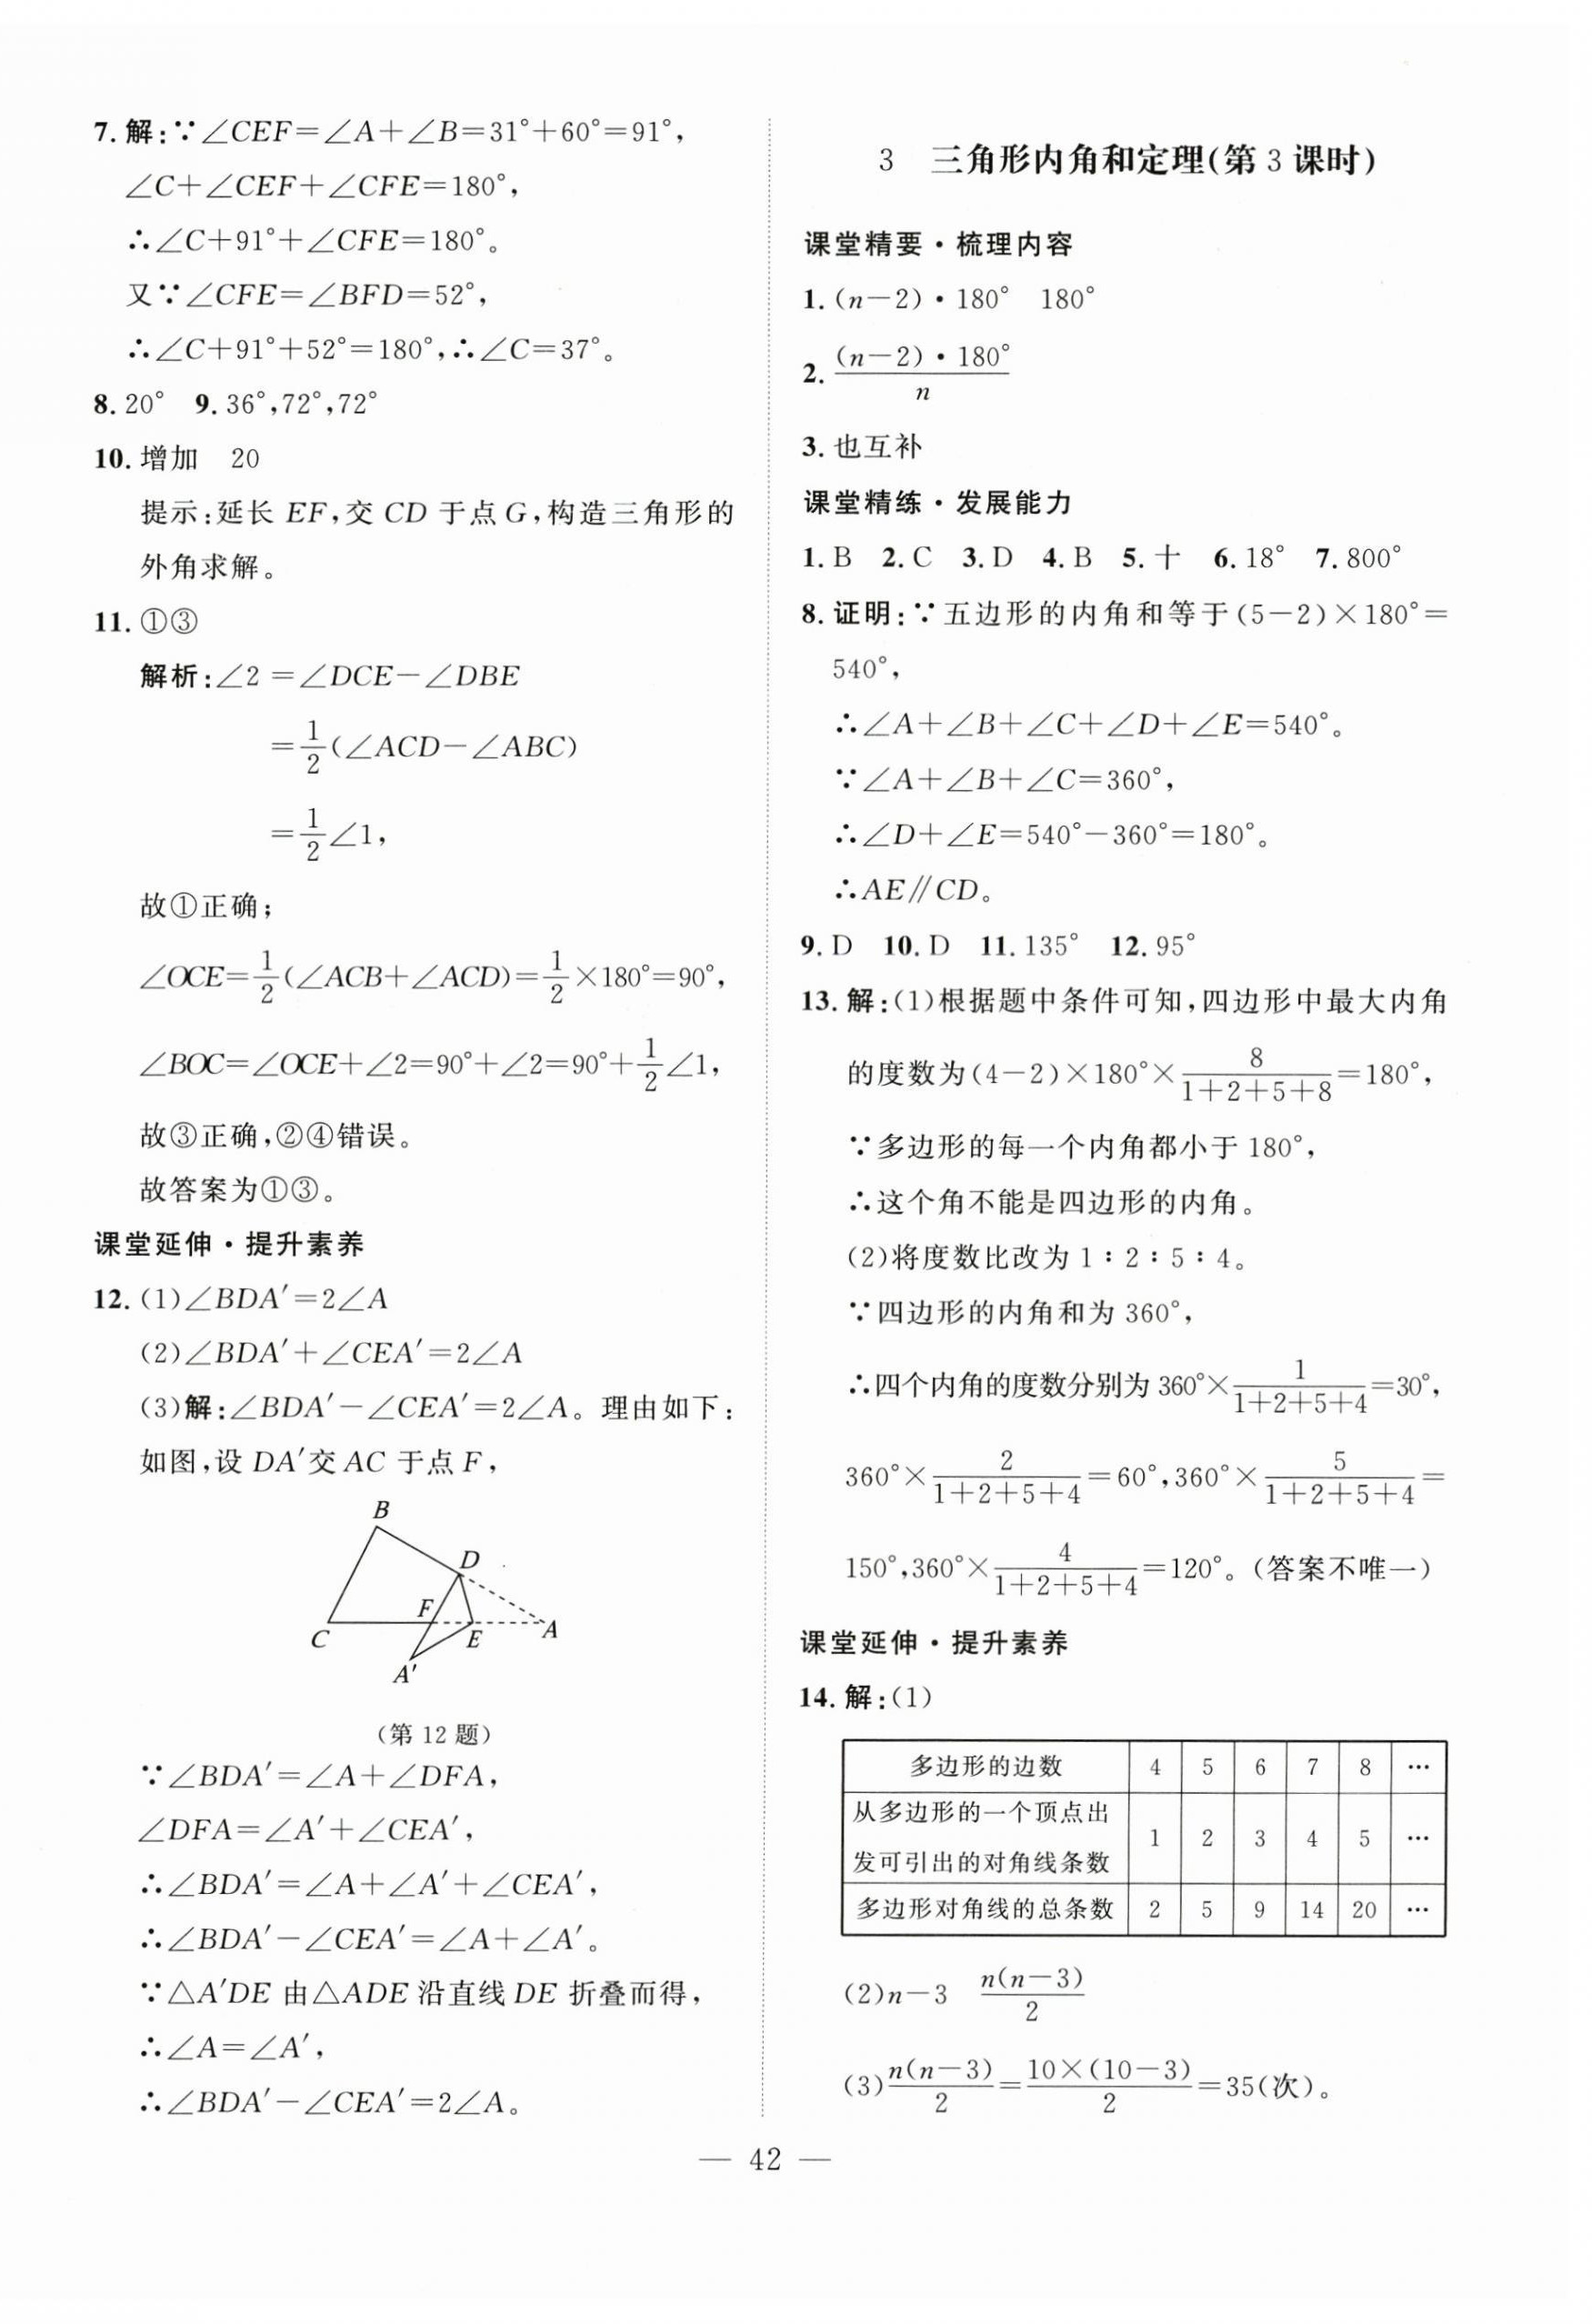 7. 解:∵∠CEF=∠A+∠B=31°+60°=91°,
∠C+∠CEF+∠CFE=180°,
∴∠C+91°+∠CFE=180°。
又∵∠CFE=∠BFD=52°,
∴∠C+91°+52°=180°,∴∠C=37°。
8. 20° 9. 36°,72°,72°
10. 增加 20
提示:延长 EF,交 CD 于点 G,构造三角形的
外角求解。
11. ①③
解析:∠2 =∠DCE-∠DBE
=\frac{1}{2}(∠ACD-∠ABC)
=\frac{1}{2}∠1,
故①正确;
∠OCE=\frac{1}{2}(∠ACB+∠ACD)=\frac{1}{2}×180°=90°,
∠BOC=∠OCE+∠2=90°+∠2=90°+\frac{1}{2}∠1,
故③正确,②④错误。
故答案为①③。
课堂延伸·提升素养
12. (1)∠BDA′=2∠A
(2)∠BDA′+∠CEA′=2∠A
(3)解:∠BDA′-∠CEA′=2∠A。理由如下:
如图,设 DA′交 AC 于点 F,
B
D
F
C
E
A
A′
(第 12 题)
∵∠BDA′=∠A+∠DFA,
∠DFA=∠A′+∠CEA′,
∴∠BDA′=∠A+∠A′+∠CEA′,
∴∠BDA′-∠CEA′=∠A+∠A′。
∵△A′DE 由△ADE 沿直线 DE 折叠而得,
∴∠A=∠A′,
∴∠BDA′-∠CEA′=2∠A。
3 三角形内角和定理(第 3 课时)
课堂精要·梳理内容
1. (n-2)·180° 180°
2. \frac{(n-2)·180°}{n}
3. 也互补
课堂精练·发展能力
1. B 2. C 3. D 4. B 5. 十 6. 18° 7. 800°
8. 证明:∵五边形的内角和等于(5-2)×180°=
540°,
∴∠A+∠B+∠C+∠D+∠E=540°。
∵∠A+∠B+∠C=360°,
∴∠D+∠E=540°-360°=180°。
∴AE∥CD。
9. D 10. D 11. 135° 12. 95°
13. 解:(1)根据题中条件可知,四边形中最大内角
的度数为(4-2)×180°×\frac{8}{1+2+5+8}=180°,
∵多边形的每一个内角都小于 180°,
∴这个角不能是四边形的内角。
(2)将度数比改为 1∶2∶5∶4。
∵四边形的内角和为 360°,
∴四个内角的度数分别为 360°×\frac{1}{1+2+5+4}=30°,
360°×\frac{2}{1+2+5+4}=60°,360°×\frac{5}{1+2+5+4}=
150°,360°×\frac{4}{1+2+5+4}=120°。(答案不唯一)
课堂延伸·提升素养
14. 解:(1)
多边形的边数 4 5 6 7 8 …
从多边形的一个顶点出
发可引出的对角线条数 1 2 3 4 5 …
多边形对角线的总条数 2 5 9 14 20 …
(2)n-3 \frac{n(n-3)}{2}
(3)\frac{n(n-3)}{2}=\frac{10×(10-3)}{2}=35(次)。
— 42 —